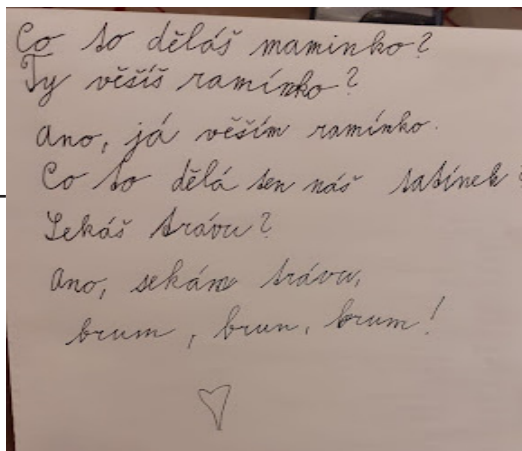 Co to děláš maminko?
Ty věšíš ramínko?
Ano, já věším ramínko.
Co to dělá ten náš tatínek?
Sekáš trávu?
Ano, sekám trávu,
brum, brun, brum!